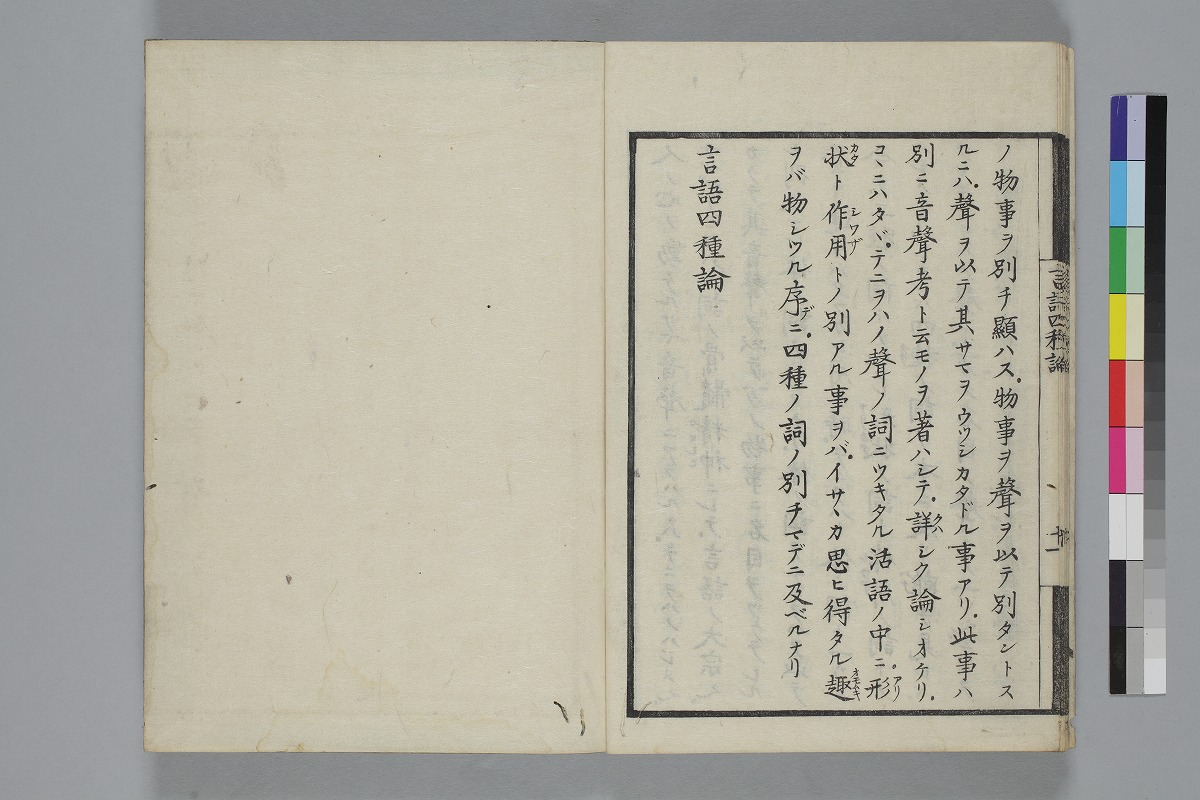 ノ物事ヲ別チ顯ハス。物事ヲ聲ヲ以テ別タントス
ルニハ。聲ヲ以テ其サマヲウツシカタドル事アリ。此事ハ
別ニ音聲考ト云モノヲ著ハシテ。詳シク論シオケリ。
コヽニハタヾ。テニヲハノ聲ノ詞ニツキタル活語ノ中ニ。形
状ト作用トノ別アル事ヲバ。イサヽカ思ヒ得タル趣
ヲバ物シツル序デニ。四種ノ詞ノ別チマデニ及ベルナリ
言語四種論
言語四種論
十一